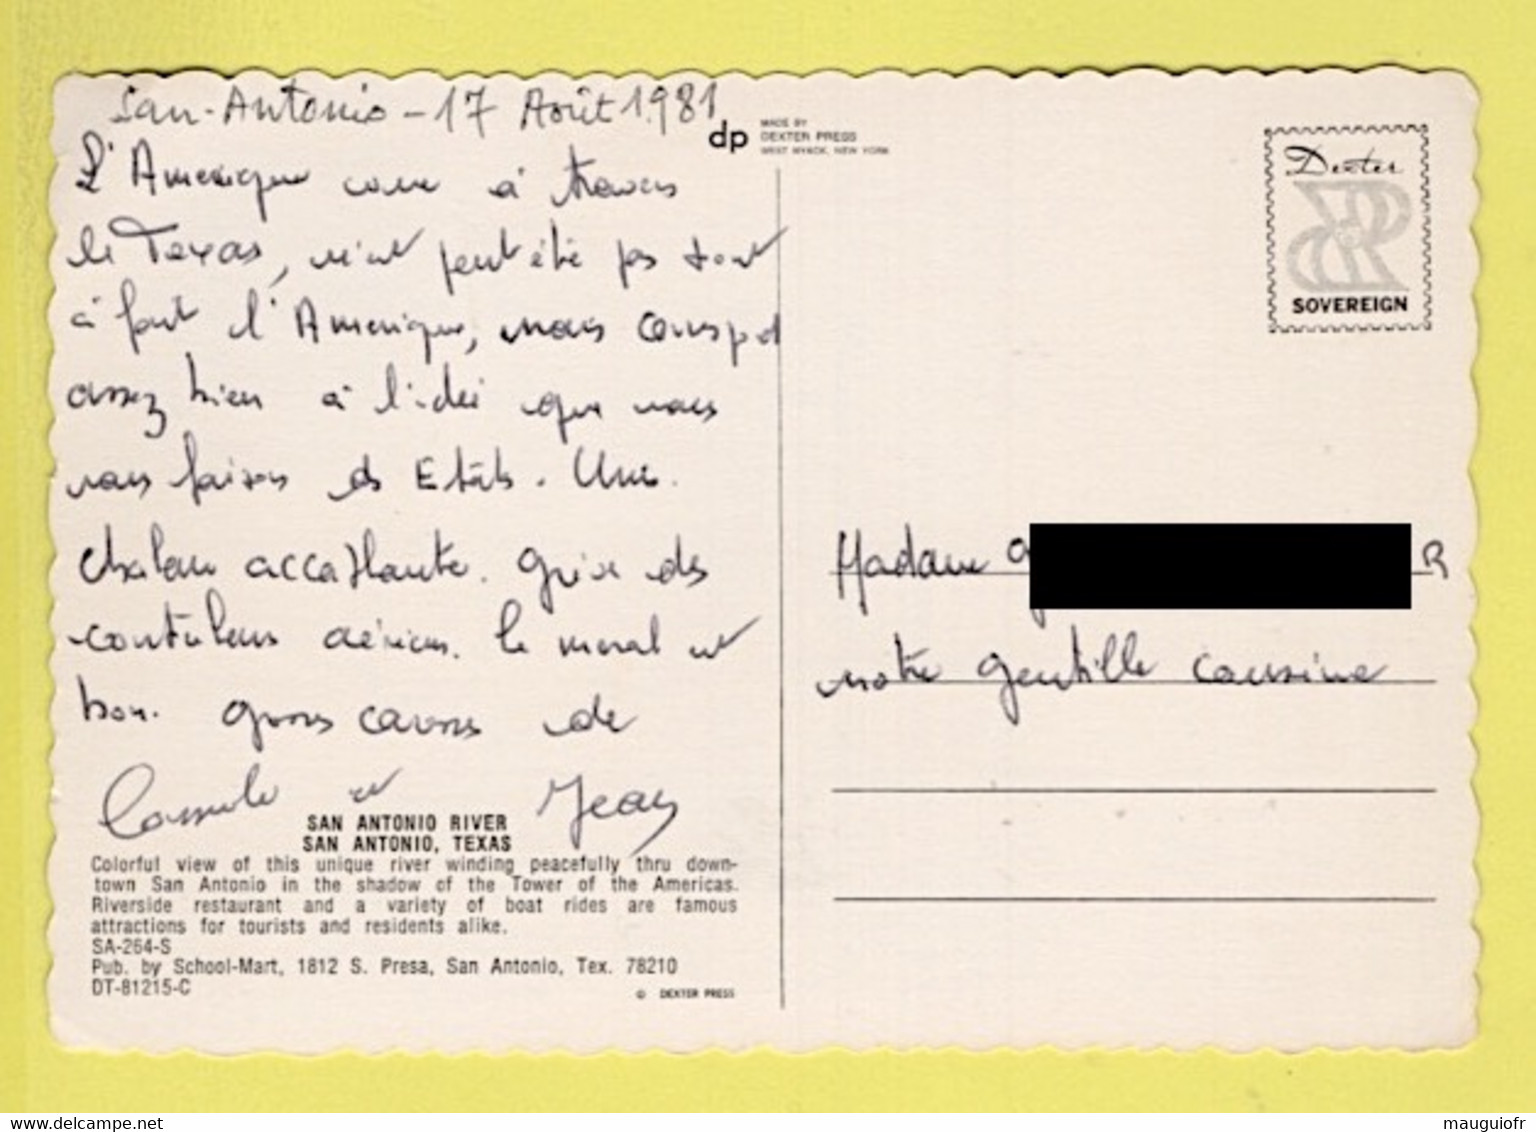 San-Antonio - 17 Août 1981
L'Amérique vue à travers
le Texas, n'est peut être pas tout
à fait l'Amérique, mais correspd
assez bien à l'idée que nous
nous faisons des Etats-Unis.
Chaleur accablante. Grève des
contrôleurs aériens. Le moral est
bon. Grosses bises de
et Jean
SAN ANTONIO RIVER
SAN ANTONIO, TEXAS
Colorful view of this unique river winding peacefully thru down-
town San Antonio in the shadow of the Tower of the Americas.
Riverside restaurant and a variety of boat rides are famous
attractions for tourists and residents alike.
SA-264-S
Pub. by School-Mart, 1812 S. Presa, San Antonio, Tex. 78210
DT-81215-C
© DEXTER PRESS
dp
MADE BY
DEXTER PRESS
WEST NYACK, NEW YORK
Dexter
SOVEREIGN
Madame G R
notre gentille cousine
www.delcampe.net
mauguiofr